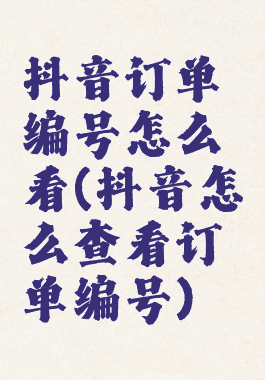 抖音订单
编号怎么
看(抖音怎
么查看订
单编号)